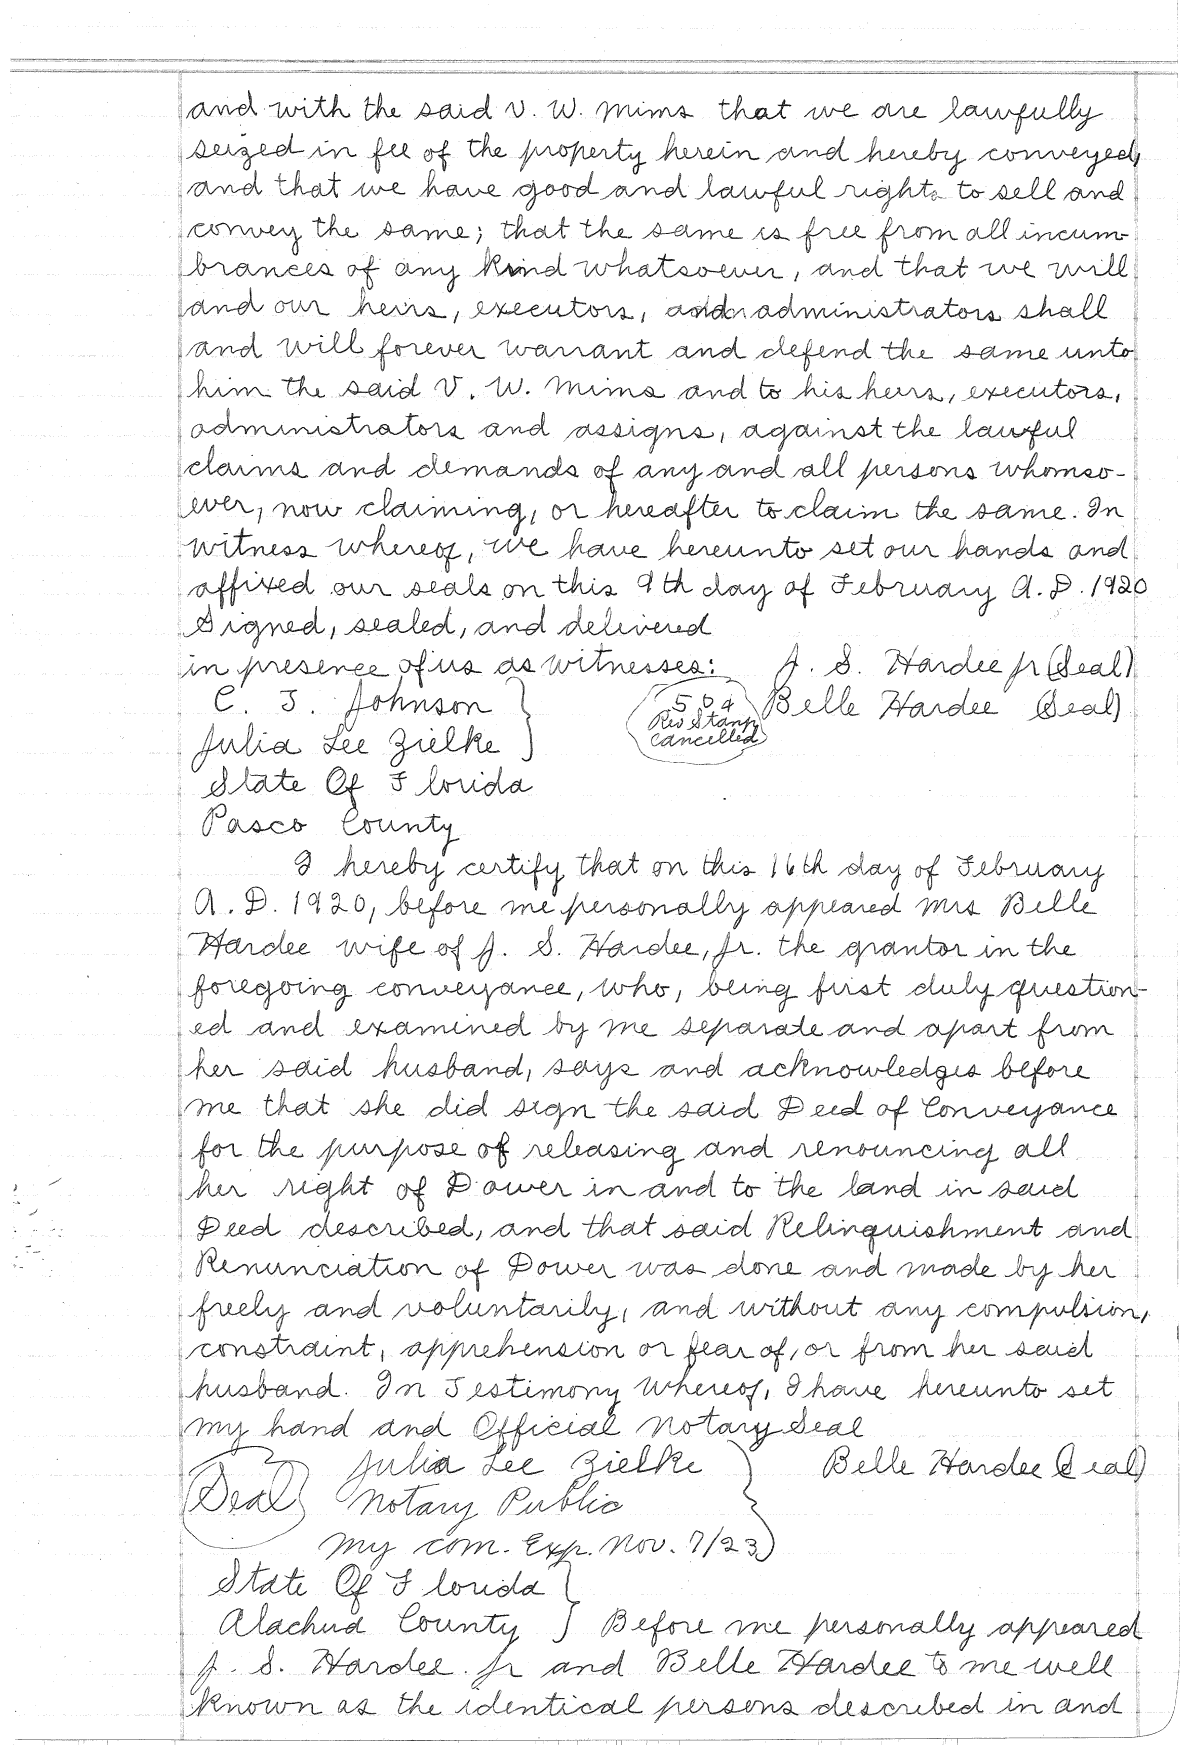 and with the said V. W. Mims that we are lawfully
seized in fee of the property herein and hereby conveyed,
and that we have good and lawful rights to sell and
convey the same; that the same is free from all incum-
brances of any kind whatsoever, and that we will
and our heirs, executors, and administrators shall
and will forever warrant and defend the same unto
him the said V. W. Mims and to his heirs, executors,
administrators and assigns, against the lawful
claims and demands of any and all persons whomso-
ever, now claiming, or hereafter to claim the same. In
witness whereof, we have hereunto set our hands and
affixed our seals on this 9th day of February A. D. 1920
Signed, sealed, and delivered
in presence of us as witnesses: J. S. Hardee Jr (Seal)
C. J. Johnson Belle Hardee (Seal)
50¢
Rev Stamp
cancelled
Julia Lee Zielke
State Of Florida
Pasco County
I hereby certify that on this 16th day of February
A. D. 1920, before me personally appeared Mrs Belle
Hardee wife of J. S. Hardee, Jr. the grantor in the
foregoing conveyance, who, being first duly question-
ed and examined by me separate and apart from
her said husband, says and acknowledges before
me that she did sign the said Deed of Conveyance
for the purpose of releasing and renouncing all
her right of Dower in and to the land in said
Deed described, and that said Relinquishment and
Renunciation of Dower was done and made by her
freely and voluntarily, and without any compulsion,
constraint, apprehension or fear of, or from her said
husband. In Testimony Whereof, I have hereunto set
my hand and Official Notary Seal
Julia Lee Zielke Belle Hardee (Seal)
(Seal) Notary Public
My com. Exp. Nov. 7/23
State Of Florida
Alachua County } Before me personally appeared
J. S. Hardee Jr and Belle Hardee to me well
known as the identical persons described in and